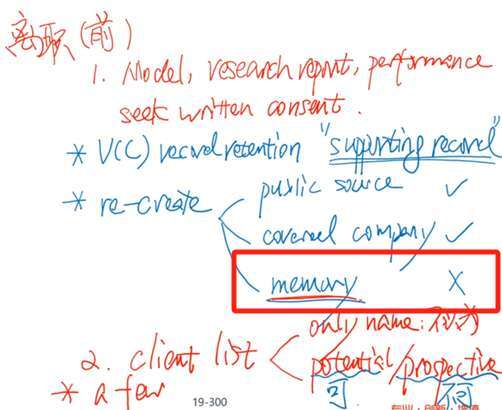 离职(前)
1. Model, research report, performance
seek written consent.
* V(C) record retention "supporting record"
public source ✓
* re-create
covered company ✓
memory ×
only name:
2. client list
potential/prospective
* a few
可
19-300